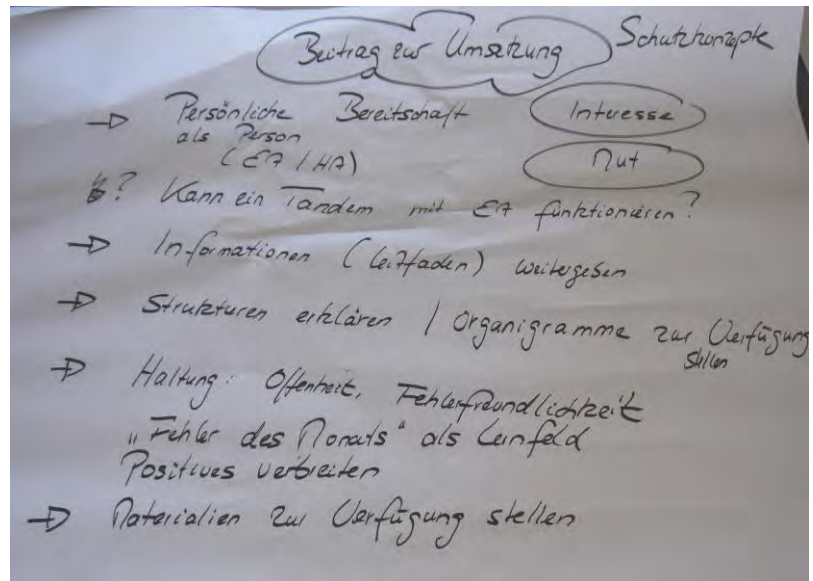 Beitrag zur Umsetzung Schutzkonzepte
→ Persönliche Bereitschaft Interesse
als Person
(EA / HA) Mut
? Kann ein Tandem mit EA funktionieren?
→ Informationen (Leitfaden) weitergeben
→ Strukturen erklären / Organigramme zur Verfügung
stellen
→ Haltung: Offenheit, Fehlerfreundlichkeit
„Fehler des Monats" als Lernfeld
Positives verbreiten
→ Materialien zur Verfügung stellen